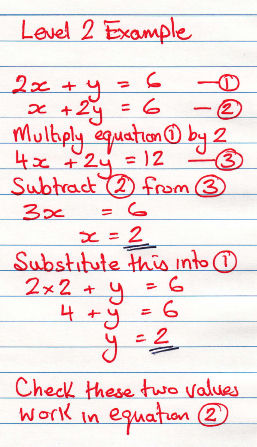 Level 2 Example
2x + y = 6 — ①
x + 2y = 6 — ②
Multiply equation ① by 2
4x + 2y = 12 — ③
Subtract ② from ③
3x = 6
x = 2
Substitute this into ①
2×2 + y = 6
4 + y = 6
y = 2
Check these two values
work in equation ②